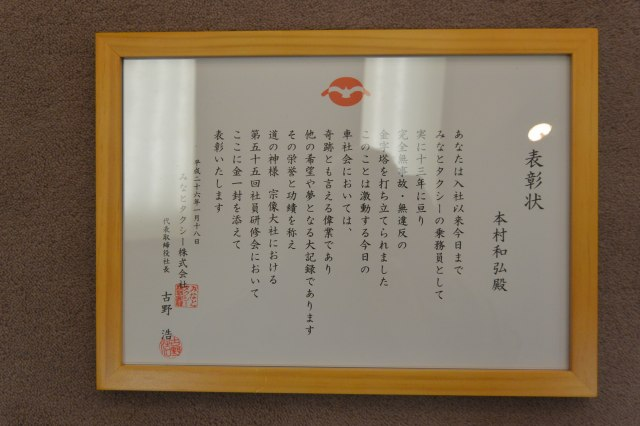 表彰状
本村和弘殿
あなたは入社以来今日まで
みなとタクシーの乗務員として
実に十三年に亘り
完全無事故・無違反の
金字塔を打ち立てられました
このことは激動する今日の
車社会においては、
奇跡とも言える偉業であり
他の希望や夢となる大記録であります
その栄誉と功績を称え
道の神様 宗像大社における
第五十五回社員研修会において
ここに金一封を添えて
表彰いたします
平成二十六年一月十八日
みなとタクシー株式会社
代表取締役社長 古野 浩